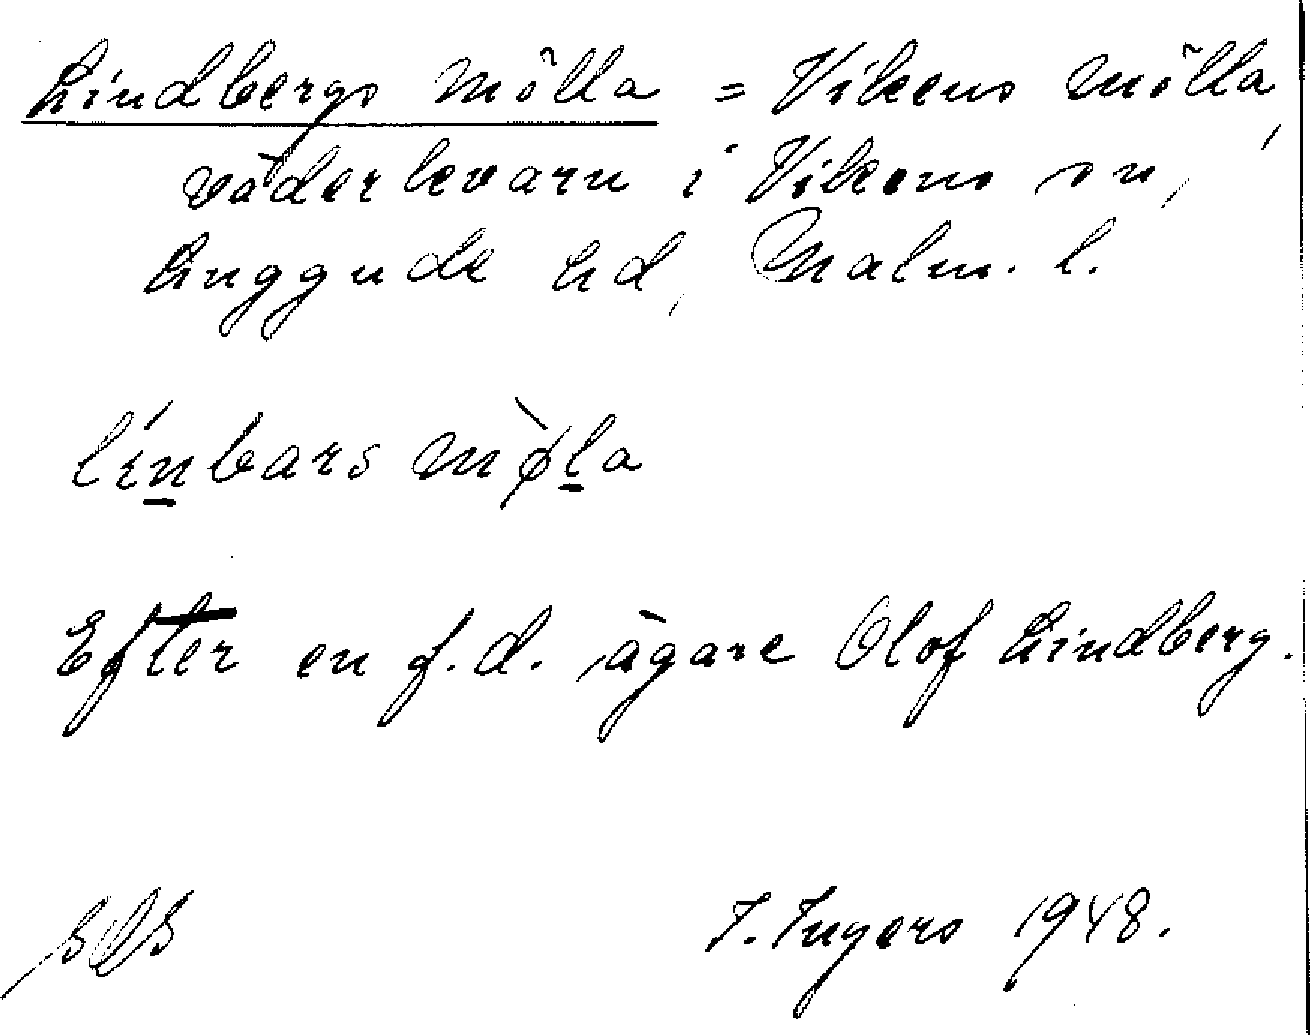 Lindbergs mölla = Vikens mölla,
väderkvarn i Vikens sn,
Luggude hd, Malm. l.
línbars mø̀la
Efter en f.d. ägare Olof Lindberg.
I. Ingers 1948.